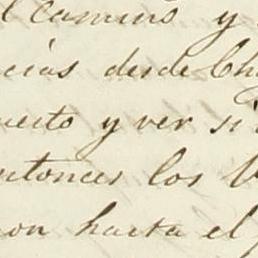 l camino y
cias desde Ch
uerto y ver si
ntonces los
on hasta el